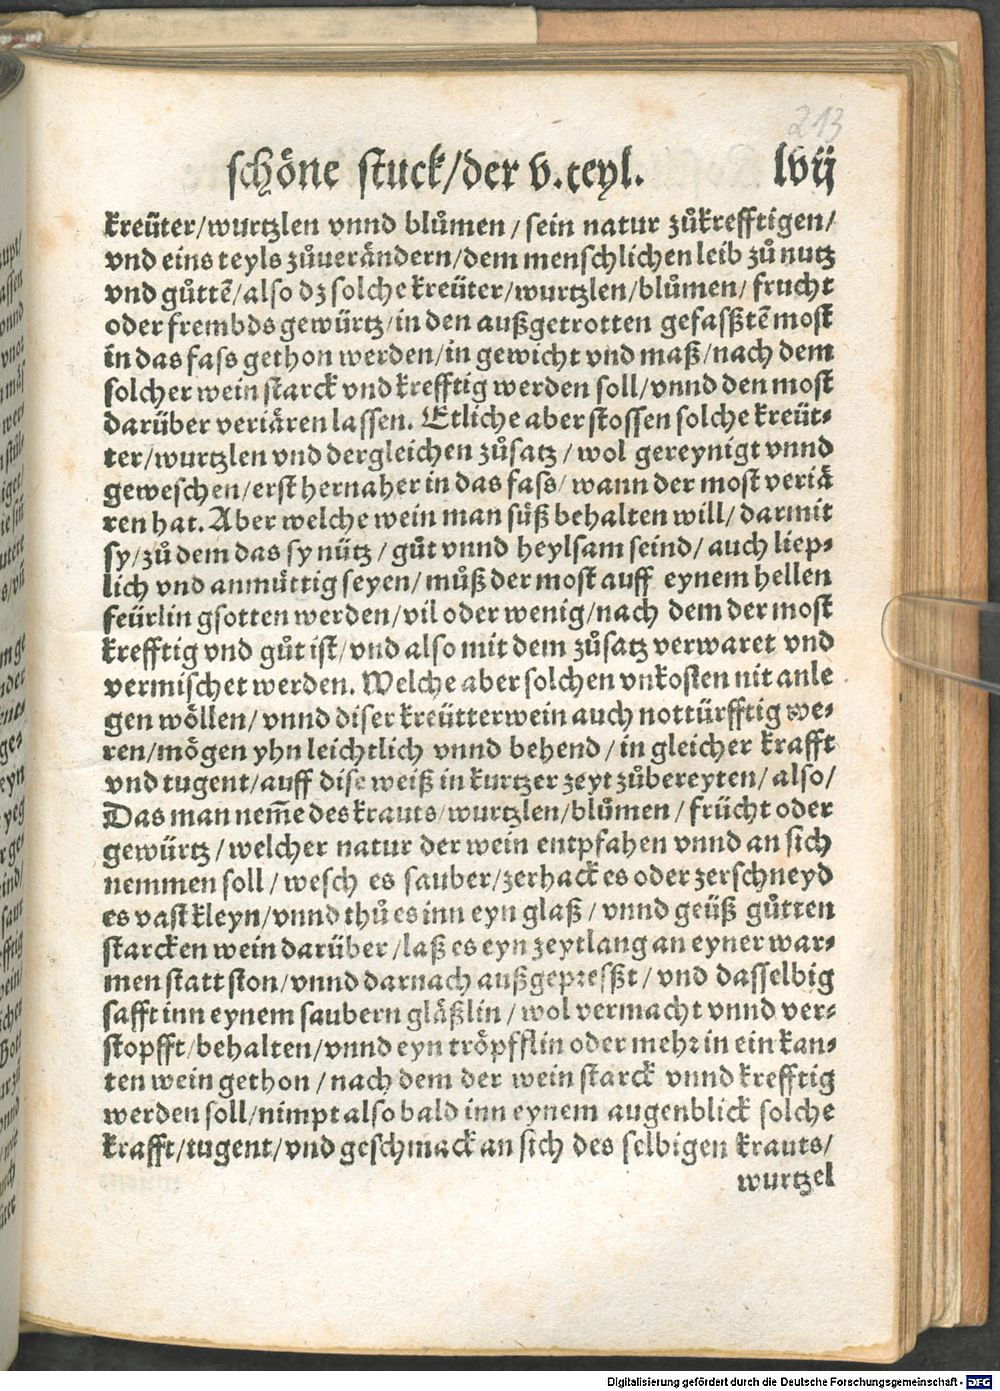 213
schöne stuck/der v.teyl. lvij
kreüter/wurtzlen vnnd blůmen/sein natur zůkrefftigen/
vnd eins teyls zůuerändern/dem menschlichen leib zů nutz
vnd gůttē/also dz solche kreüter/wurtzlen/blůmen/frucht
oder frembds gewürtz/in den außgetrotten gefasßtē most
in das fass gethon werden/in gewicht vnd maß/nach dem
solcher wein starck vnd krefftig werden soll/vnnd den most
darüber veriären lassen. Etliche aber stossen solche kreüt-
ter/wurtzlen vnd dergleichen zůsatz/wol gereynigt vnnd
geweschen/erst hernaher in das fass/wann der most veriä
ren hat. Aber welche wein man süß behalten will/darmit
sy/zů dem das sy nütz/gůt vnnd heylsam seind/auch liep-
lich vnd anmůttig seyen/můß der most auff eynem hellen
feürlin gsotten werden/vil oder wenig/nach dem der most
krefftig vnd gůt ist/vnd also mit dem zůsatz verwaret vnd
vermischet werden. Welche aber solchen vnkosten nit anle
gen wöllen/vnnd diser kreütterwein auch nottürfftig we-
ren/mögen yhn leichtlich vnnd behend/in gleicher krafft
vnd tugent/auff dise weiß in kurtzer zeyt zůbereyten/also/
Das man nem̄e des krauts/wurtzlen/blůmen/frücht oder
gewürtz/welcher natur der wein entpfahen vnnd an sich
nemmen soll/wesch es sauber/zerhack es oder zerschneyd
es vast kleyn/vnnd thů es inn eyn glaß/vnnd geüß gůtten
starcken wein darüber/laß es eyn zeytlang an eyner war-
men statt ston/vnnd darnach außgepresßt/vnd dasselbig
safft inn eynem saubern gläßlin/wol vermacht vnnd ver-
stopfft/behalten/vnnd eyn tröpfflin oder mehr in ein kan-
ten wein gethon/nach dem der wein starck vnnd krefftig
werden soll/nimpt also bald inn eynem augenblick solche
krafft/tugent/vnd geschmack an sich des selbigen krauts/
wurtzel
Digitalisierung gefördert durch die Deutsche Forschungsgemeinschaft - DFG